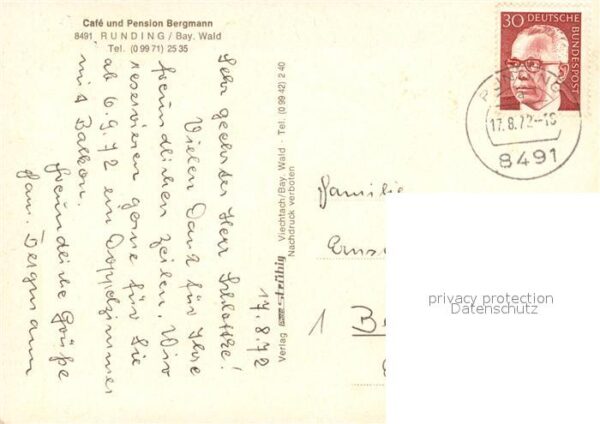 Café und Pension Bergmann
8491 RUNDING / Bay. Wald
Tel. (0 99 71) 25 35
17.8.72
Sehr geehrter Herr
Vielen Dank für Ihre
freundlichen Zeilen. Wir
reservieren gerne für Sie
ab 6.9.72 ein Doppelzimmer
mit Balkon.
Freundliche Grüße
Fam. Bergmann
Verlag Viechtach/Bay. Wald - Tel. (0 99 42) 2 40
Nachdruck verboten
30 DEUTSCHE
BUNDESPOST
17.8.72-16
8491
Familie
1
privacy protection
Datenschutz